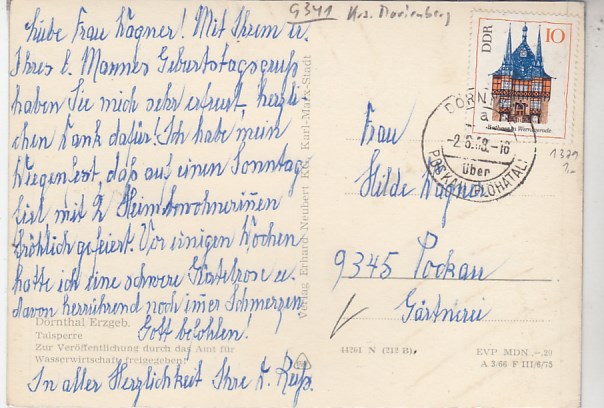 9341 Krs. Marienberg
Liebe Frau Wagner! Mit Ihrem u.
Ihres l. Mannes Geburtstagsgruß
haben Sie mich sehr erfreut, herzli-
chen Dank dafür! Ich habe mein
Wiegenfest, daß auf einen Sonntag
fiel mit 2 Heimbewohnerinnen
fröhlich gefeiert. Vor einigen Wochen
hatte ich eine schwere Gürtelrose u.
davon herrührend noch immer Schmerzen
Gott befohlen!
In aller Herzlichkeit Ihre
Dörnthal/Erzgeb.
Talsperre
Zur Veröffentlichung durch das Amt für
Wasserwirtschaft freigegeben
Verlag Erhard Neubert KG, Karl-Marx-Stadt
DDR
10
Rathaus in Wernigerode
DÖRNTHAL
a
-2.6.68.-16
über
POCKAU (FLÖHATAL)
1371
1.-
Frau
Hilde Wagner
9345 Pockau
Gärtnerei
44261 N (212 B)
EVP MDN -,20
A 2/66 F III/6/75